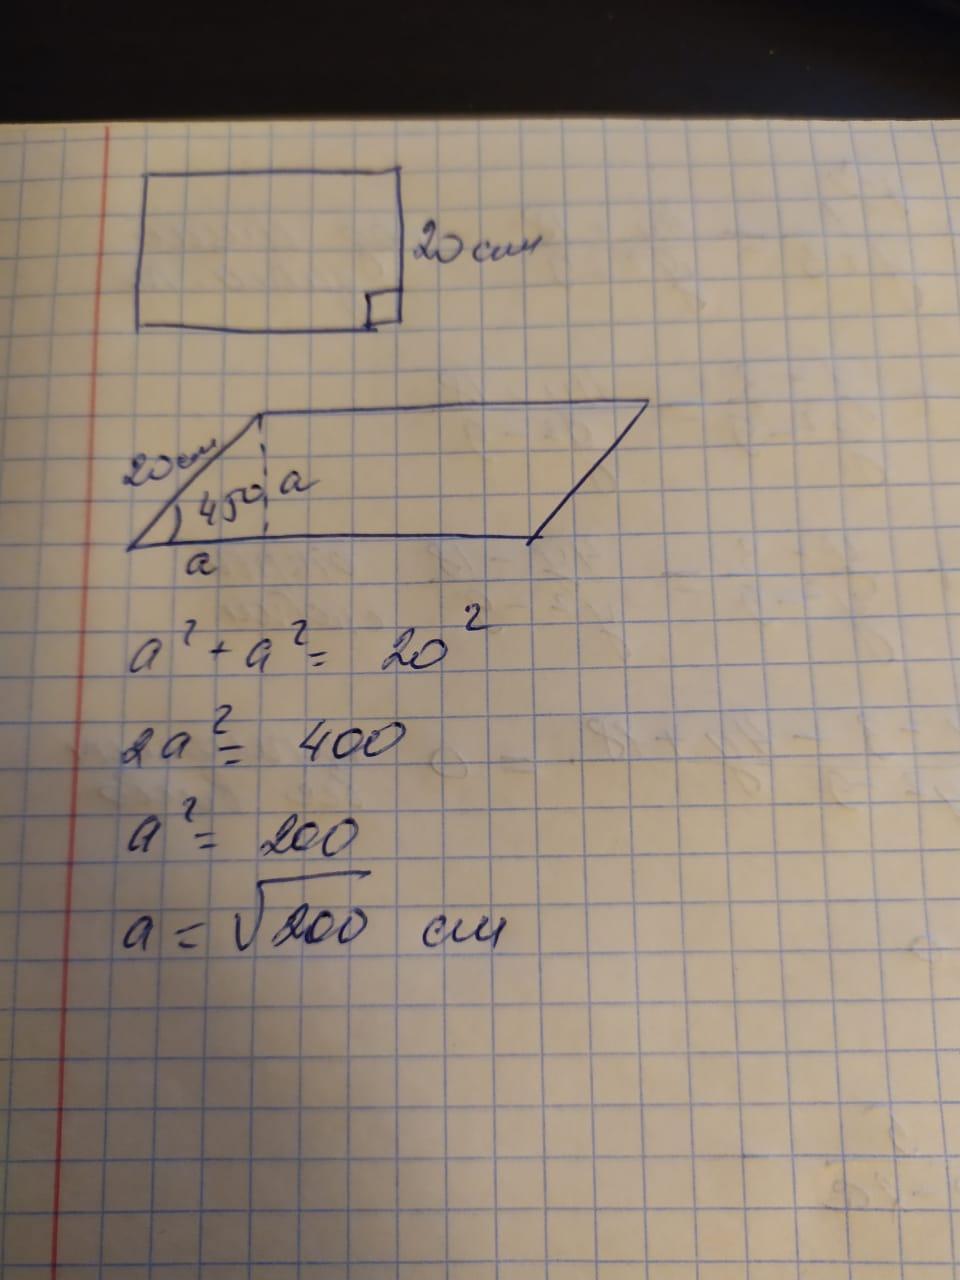 20 см
20 см
45° a
a
a² + a² = 20²
2a² = 400
a² = 200
a = √200 см